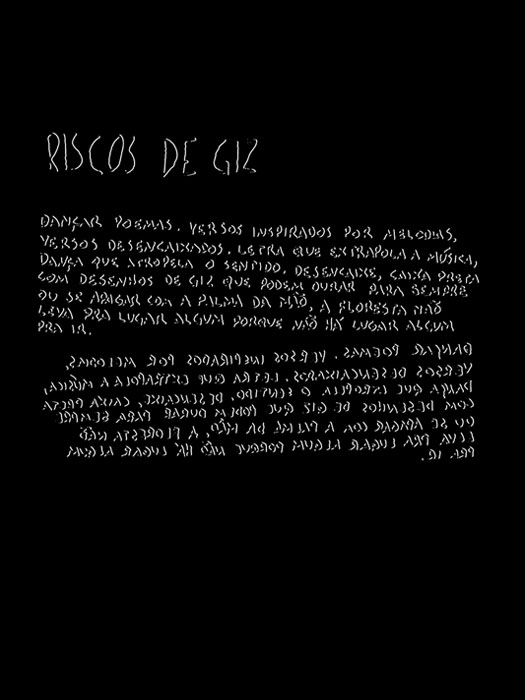 RISCOS DE GIZ
DANÇAR POEMAS. VERSOS INSPIRADOS POR MELODIAS,
VERSOS DESENCAIXADOS. LETRA QUE EXTRAPOLA A MÚSICA,
DANÇA QUE ATROPELA O SENTIDO. DESENCAIXE, CAIXA PRETA
COM DESENHOS DE GIZ QUE PODEM DURAR PARA SEMPRE
OU SE APAGAR COM A PALMA DA MÃO, A FLORESTA NÃO
LEVA PRA LUGAR ALGUM PORQUE NÃO HÁ LUGAR ALGUM
PRA IR.
DANÇAR POEMAS. VERSOS INSPIRADOS POR MELODIAS,
VERSOS DESENCAIXADOS. LETRA QUE EXTRAPOLA A MÚSICA,
DANÇA QUE ATROPELA O SENTIDO. DESENCAIXE, CAIXA PRETA
COM DESENHOS DE GIZ QUE PODEM DURAR PARA SEMPRE
OU SE APAGAR COM A PALMA DA MÃO, A FLORESTA NÃO
LEVA PRA LUGAR ALGUM PORQUE NÃO HÁ LUGAR ALGUM
PRA IR.